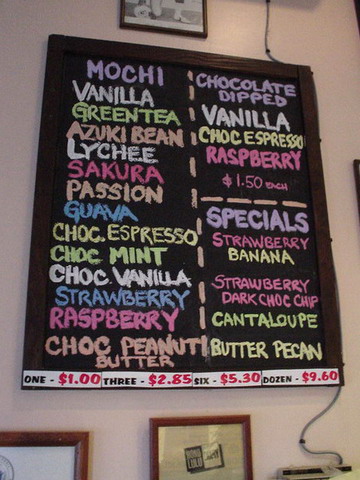 MOCHI
VANILLA
GREENTEA
AZUKI BEAN
LYCHEE
SAKURA
PASSION
GUAVA
CHOC. ESPRESSO
CHOC MINT
CHOC. VANILLA
STRAWBERRY
RASPBERRY
CHOC PEANUT
BUTTER
CHOCOLATE
DIPPED
VANILLA
CHOC ESPRESSO
RASPBERRY
$1.50 EACH
SPECIALS
STRAWBERRY
BANANA
STRAWBERRY
DARK CHOC CHIP
CANTALOUPE
BUTTER PECAN
ONE - $1.00 THREE - $2.85 SIX - $5.30 DOZEN - $9.60